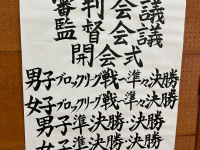 審判会議
監督会議
開会式
男子ブロックリーグ戦〜準々決勝
女子ブロックリーグ戦〜準々決勝
男子準決勝・決勝
女子準決勝・決勝